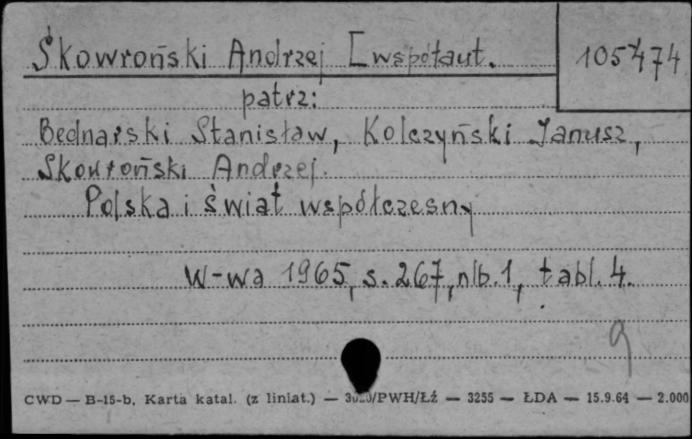 Skowroński Andrzej [współaut.
105474
patrz:
Bednarski Stanisław, Kolczyński Janusz,
Skowroński Andrzej.
Polska i świat współczesny
W-wa 1965, s. 267, nlb. 1, tabl. 4.
g
CWD — B-15-b, Karta katal. (z liniat.) — /PWH/Łź — 3255 — ŁDA — 15.9.64 — 2.000